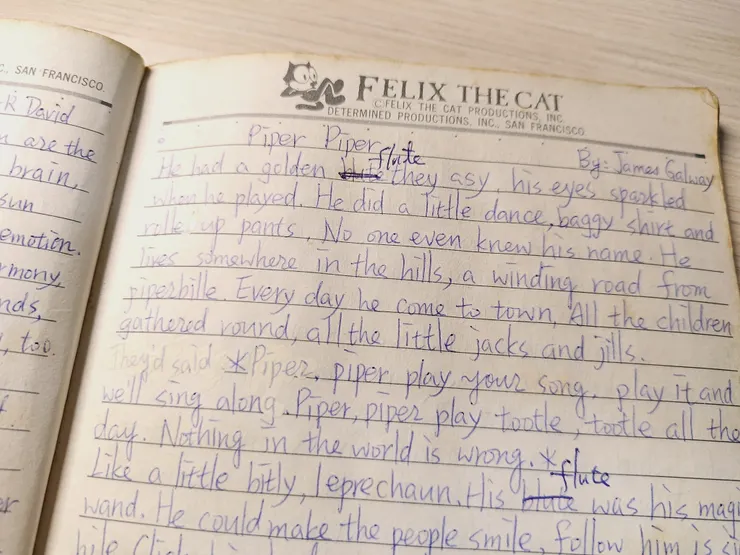 C., SAN FRANCISCO
David
are the
brain,
sun
emotion.
rmony,
nds,
, too.
er
FELIX THE CAT
©FELIX THE CAT PRODUCTIONS, INC.
DETERMINED PRODUCTIONS, INC., SAN FRANCISCO
Piper Piper
By: James Galway
He had a golden flute they asy, his eyes sparkled
when he played. He did a little dance, baggy shirt and
rolle up pants, No one even knew his name. He
lives somewhere in the hills, a winding road from
piperbille. Every day he come to town, All the children
gathered round, all the little jacks and jills.
They'd said *Piper, piper play your song, play it and
we'll sing along. Piper, piper play tootle, tootle all the
day. Nothing in the world is wrong.*
Like a little bitly, leprechaun. His flute was his magi
wand. He could make the people smile, follow him is si